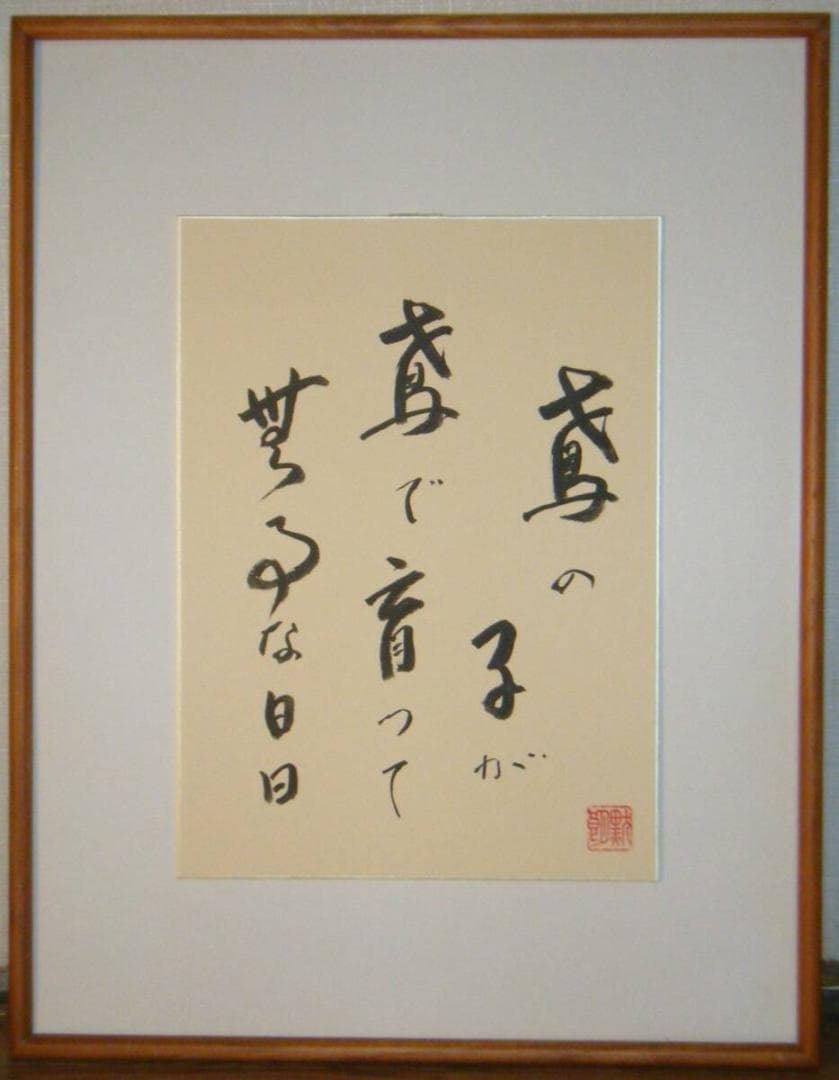 鳶の
子が
鳶で育って
無事な日日